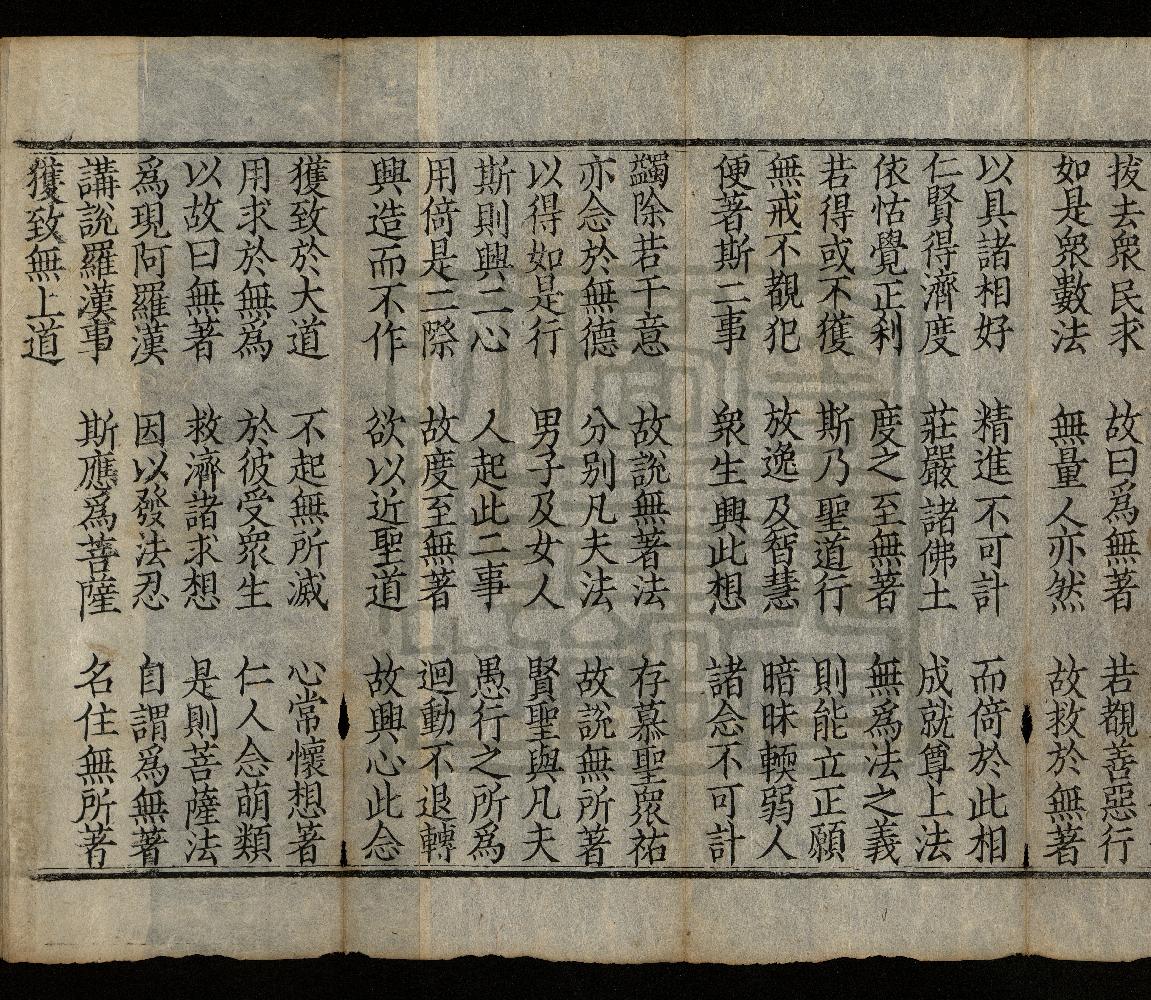 拔去衆民求　故曰爲無著　若覩善惡行
如是衆數法　無量人亦然　故救於無著
以具諸相好　精進不可計　而倚於此相
仁賢得濟度　莊嚴諸佛土　成就尊上法
依怙覺正利　度之至無著　無爲法之義
若得或不獲　斯乃聖道行　則能立正願
無戒不覩犯　放逸及智慧　暗昧輭弱人
便著斯二事　衆生興此想　諸念不可計
蠲除若干意　故說無著法　存慕聖衆祐
亦念於無德　分别凡夫法　故說無所著
以得如是行　男子及女人　賢聖與凡夫
斯則興二心　人起此二事　愚行之所爲
用倚是二際　故度至無著　迴動不退轉
興造而不作　欲以近聖道　故興心此念
獲致於大道　不起無所滅　心常懷想著
用求於無爲　於彼受衆生　仁人念萌類
以故曰無著　救濟諸求想　是則菩薩法
爲現阿羅漢　因以發法忍　自謂爲無著
講說羅漢事　斯應爲菩薩　名住無所著
獲致無上道